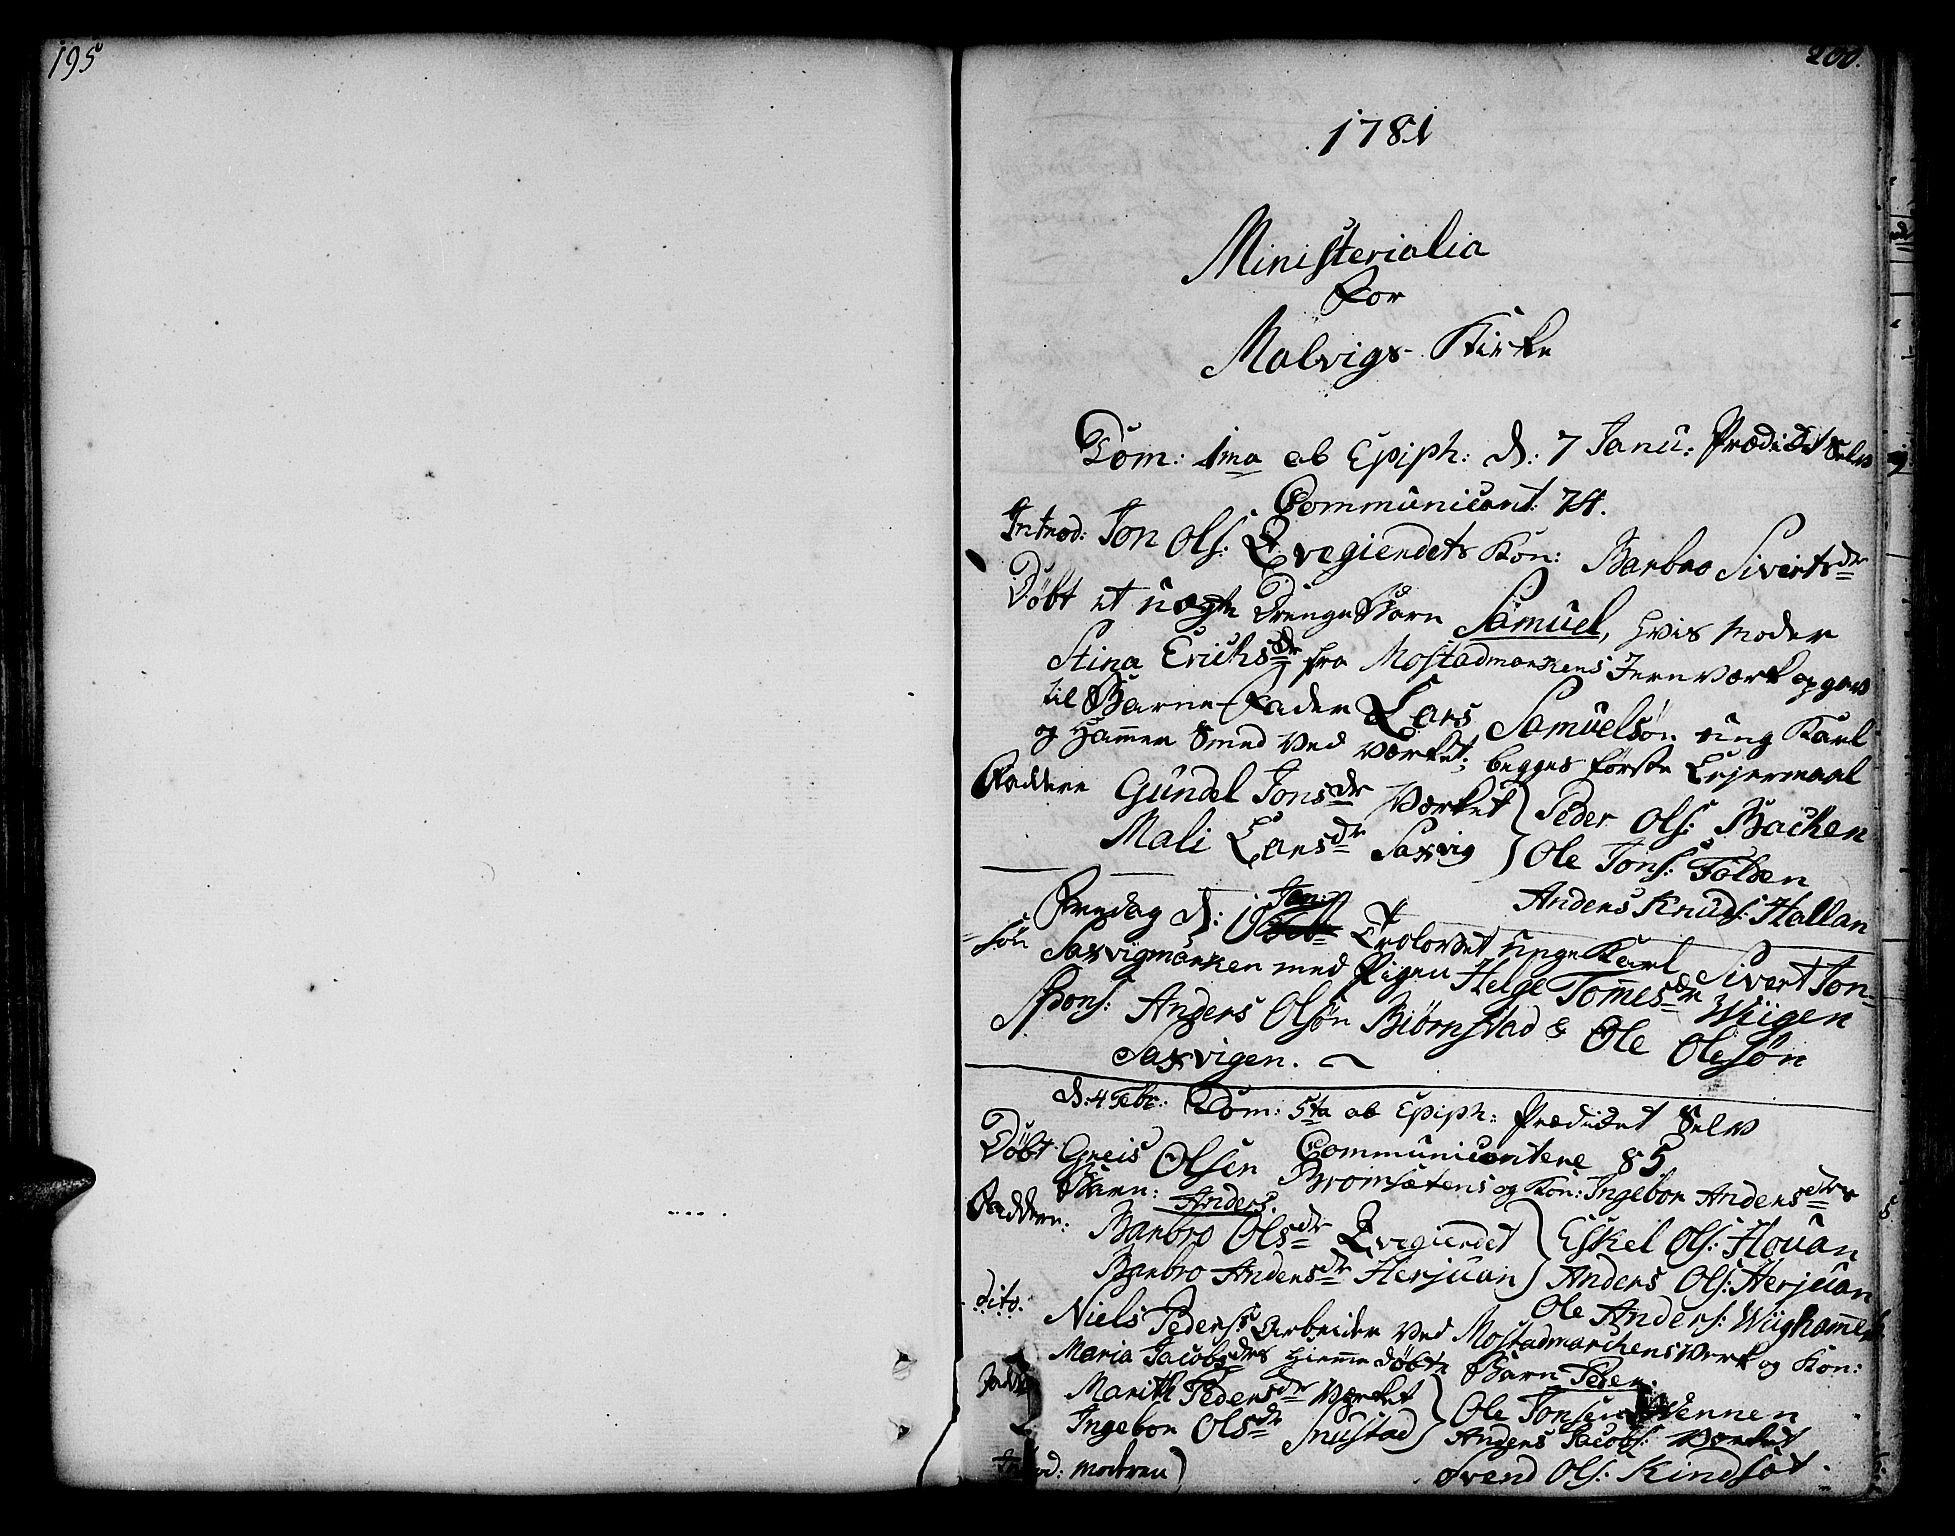 195
200.
1781
Ministerialia
for
Malvigs Kirke
Dom: 1ma ab Epiph: d: 7 Janu: Prædiket Selv
Communicant: 74.
Introd: Jon Ols: Qvegjerdets Kon: Barbro Siverts dr
Döbt et uægte Drengebarn Samuel, hvis Moder
Stina Erichs dr fra Mostadmarkens Jernværk opgav
til Barne-Fader Lars Samuelsøn ung Karl
og Hammer Smed ved værket; begges første Lejermaal
Faddere Gundel Jons dr Værket } Peder Ols: Backen
Mali Lars dr Saxvig } Ole Jons: Folden
Anders Knuds: Hallan
Fredag d: Jan: Trolovet unge Karl Sivert Jon=
=søn Saxvigmarken med Pigen Helge Tommes dr Wiigen
Spons: Anders Olsøn Biörnstad & Ole Olesøn
Saxvigen.
d: 4 Febr: Dom: 5ta ab Epiph: Prædiket Selv
Communicantere 85
Döbt Greis Olsen Bromsetens og Kon: Ingebor Anders drs
Barn: Anders.
Faddere: Barbro Ols dr Qvegierdet } Eskel Ols: Hovan
Barbro Anders dr Herjuan } Anders Ols: Herjuan
Ole Anders: Wiighammer
dito. Niels Peders: Arbeider ved Mostadmarchens Verk og Kon:
Maria Jacobs drs Hiemme döbte Barn Peder.
Fadd Marith Peders dr Værket } Ole Jonsen Wennen
Ingebor Ols dr Snustad } Anders Jacobs: Værket
Introd: Modren) Svend Ols: Kindsæt.